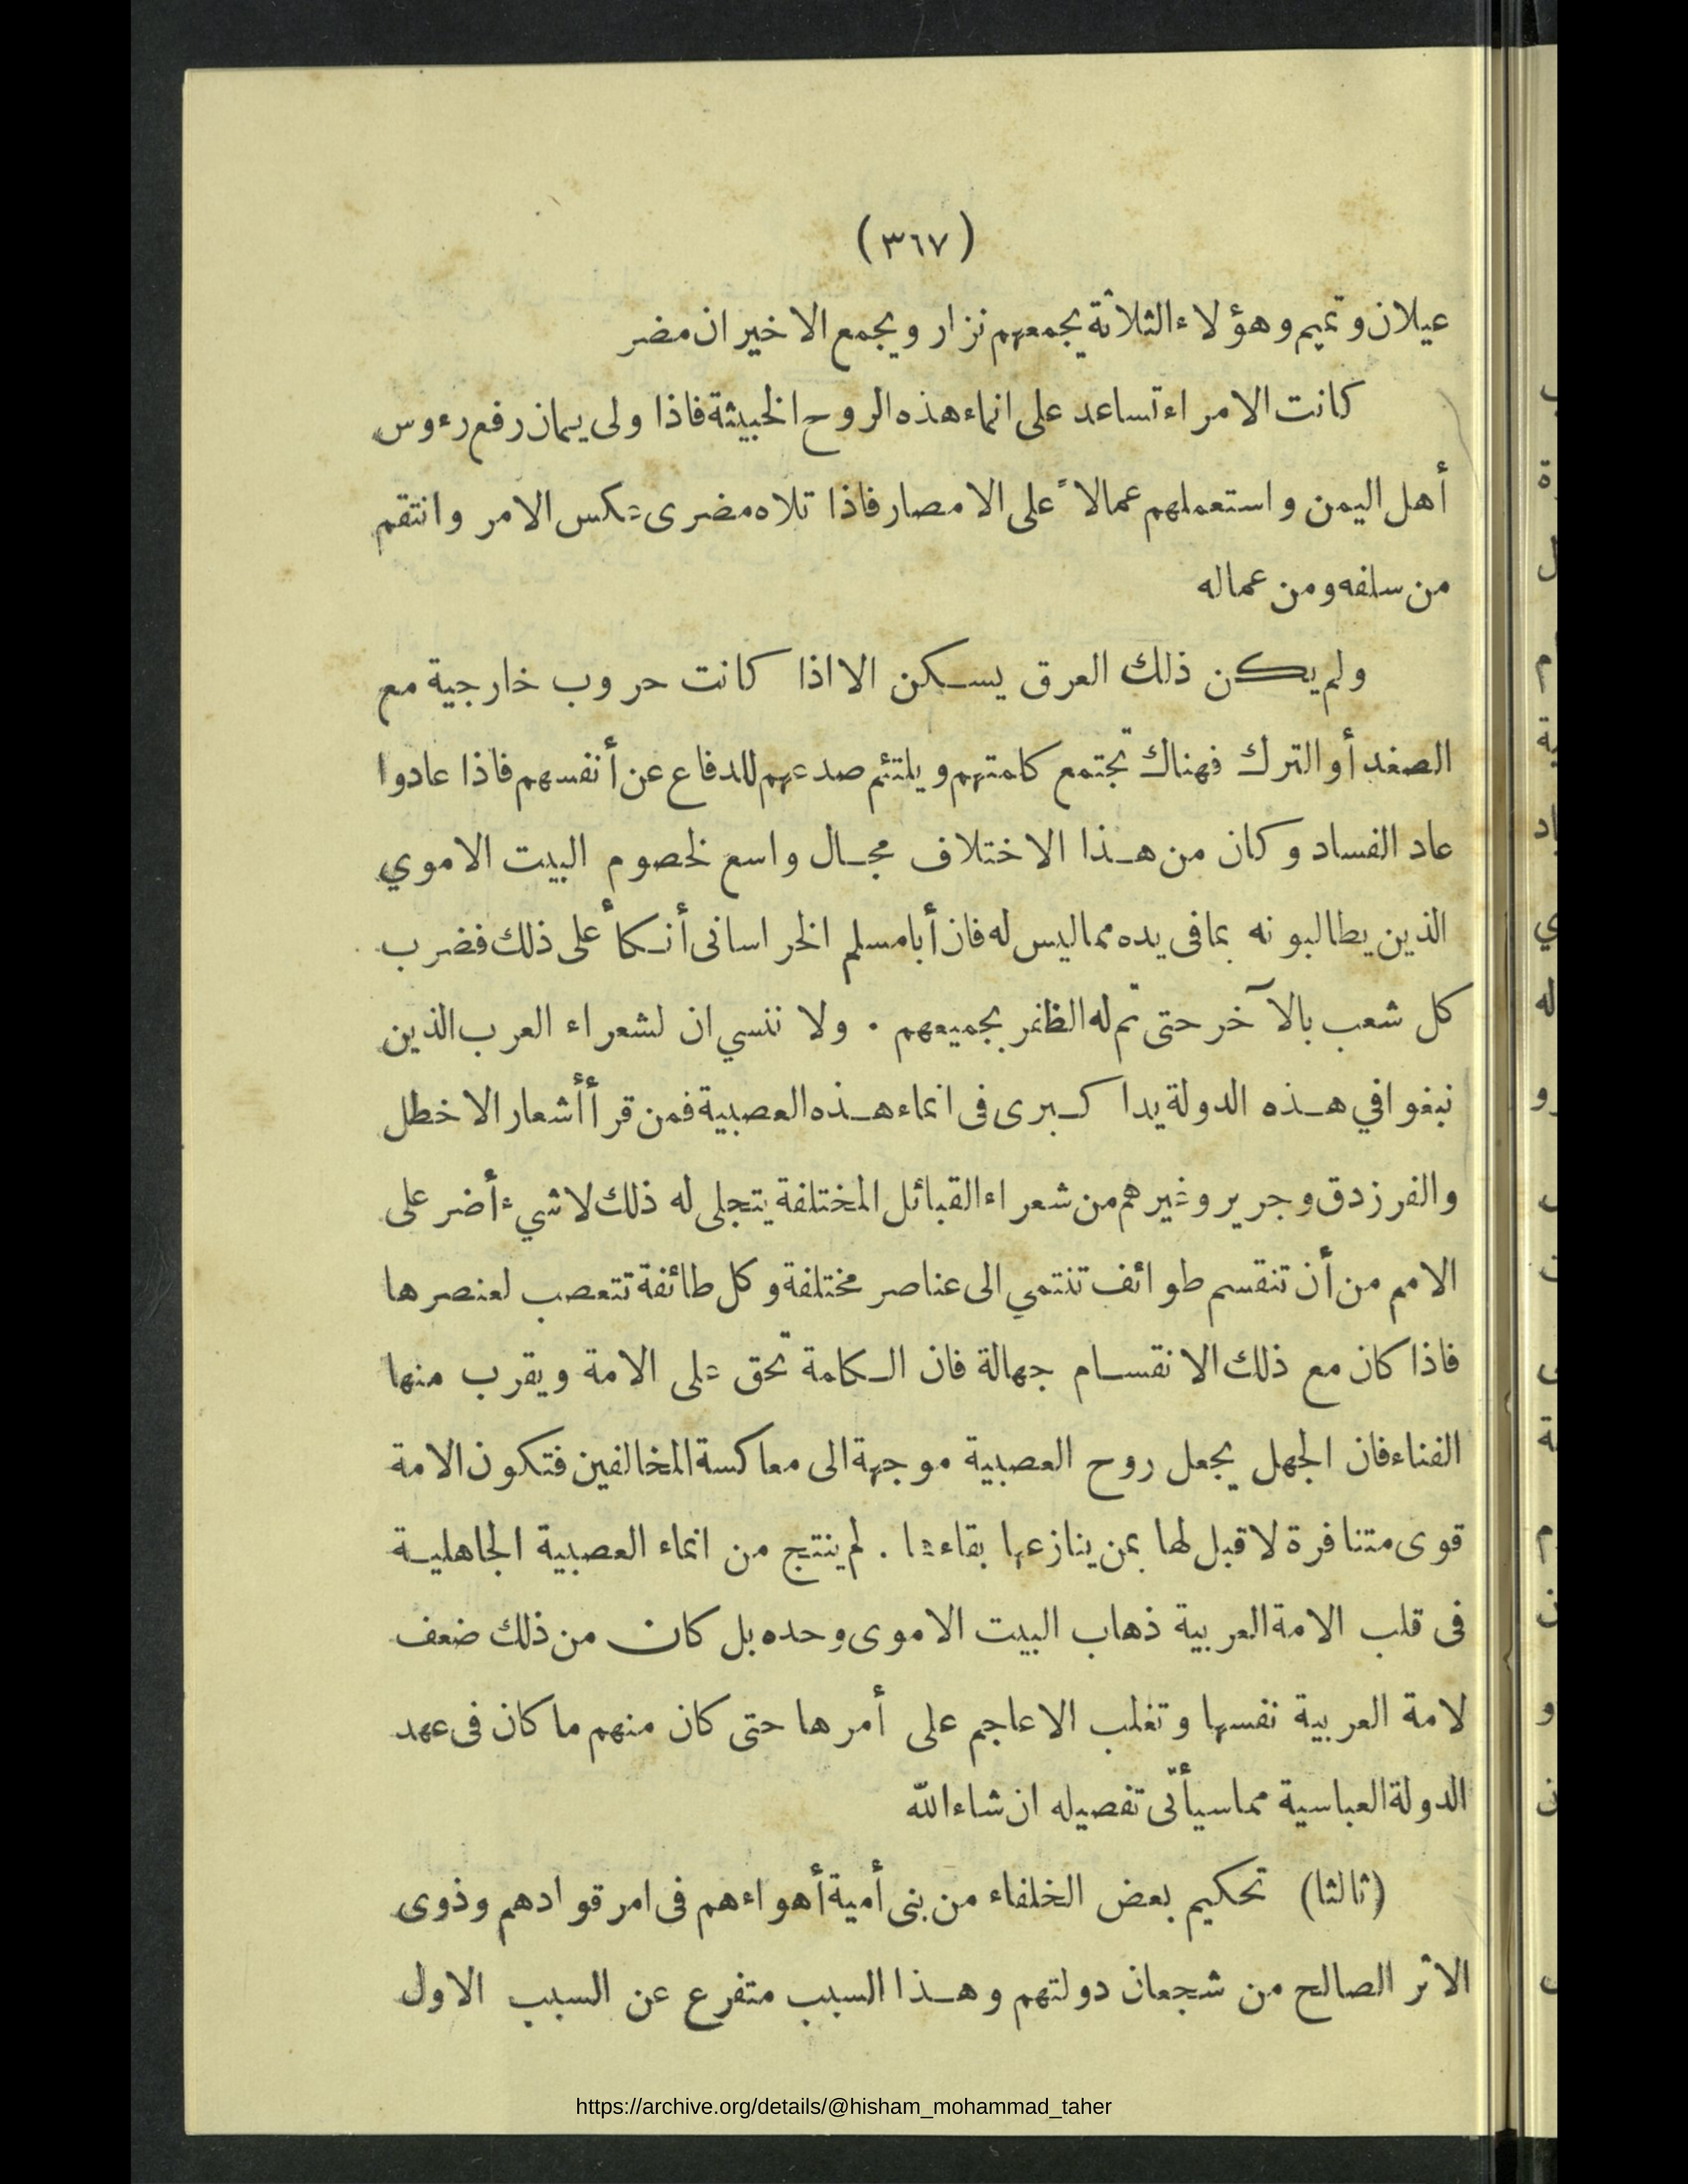 (٣٦٧)
عيلان وتميم وهؤلاء الثلاثة يجمعهم نزار ويجمع الاخيران مضر
كانت الامراء تساعد على انماء هذه الروح الخبيثة فاذا ولى يمان رفع رءوس
أهل اليمن واستعملهم عمالاً على الامصار فاذا تلاه مضرى عكس الامر وانتقم
من سلفه ومن عماله
ولم يكن ذلك العرق يسكن الا اذا كانت حروب خارجية مع
الصغد أو الترك فهناك تجتمع كلمتهم ويلتئم صدعهم للدفاع عن أنفسهم فاذا عادوا
عاد الفساد وكان من هذا الاختلاف مجال واسع لخصوم البيت الاموي
الذين يطالبونه بما فى يده مما ليس له فان أبا مسلم الخراسانى أنكأ على ذلك فضرب
كل شعب بالآخر حتى تم له الظفر بجميعهم . ولا ننسي ان لشعراء العرب الذين
نبغوا في هذه الدولة يدا كبرى فى انماء هذه العصبية فمن قرأ أشعار الاخطل
والفرزدق وجرير وغيرهم من شعراء القبائل المختلفة يتجلى له ذلك لا شيء أضر على
الامم من أن تنقسم طوائف تنتمي الى عناصر مختلفة وكل طائفة تتعصب لعنصرها
فاذا كان مع ذلك الانقسام جهالة فان الكلمة تحق على الامة ويقرب منها
الفناء فان الجهل يجعل روح العصبية موجهة الى معاكسة المخالفين فتكون الامة
قوى متنافرة لا قبل لها بمن ينازعها بقاءها . لم ينتج من انماء العصبية الجاهلية
فى قلب الامة العربية ذهاب البيت الاموى وحده بل كان من ذلك ضعف
لامة العربية نفسها وتغلب الاعاجم على أمرها حتى كان منهم ما كان فى عهد
الدولة العباسية مما سيأتى تفصيله ان شاء الله
(ثالثا) تحكيم بعض الخلفاء من بنى أمية أهواءهم فى امر قوادهم وذوى
الاثر الصالح من شجعان دولتهم وهذا السبب متفرع عن السبب الاول
https://archive.org/details/@hisham_mohammad_taher